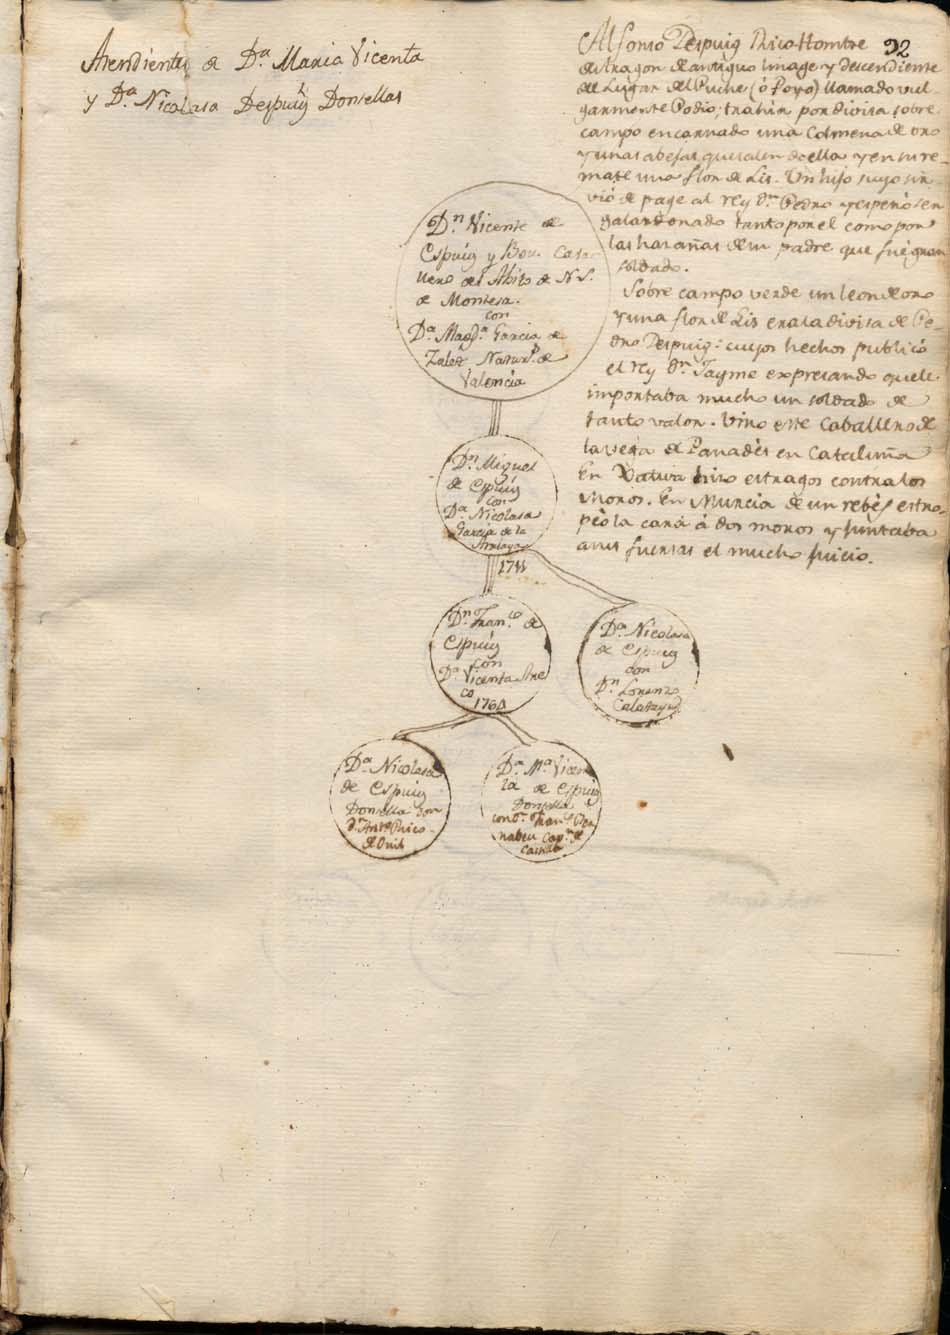 Asendientes de D.ª Maria Vicenta
y D.ª Nicolasa Despuig Donsellas
32
Alfonso Despuig Rico Hombre
de Aragon de antiguo linage y descendiente
del Lugar del Puche (ó Poyo) llamado vul-
garmente Podio; trahia por divisa sobre
campo encarnado una Colmena de oro
y unas abejas que salen de ella y en su re-
mate una flor de Lis. Un hijo suyo sir-
vió de page al rey d.n Pedro y espero ser
galardonado tanto por el como por
las hasañas de su padre que fué gran
soldado.
Sobre campo verde un leon de oro
y una flor de Lis era la divisa de Pe-
dro Despuig: cuyos hechos publicó
el rey d.n Jayme expresando que le
importaba mucho un soldado de
tanto valor. Vino este Caballero de
la vega de Panadés en Cataluña
En Xativa hizo estragos contra los
moros. En Murcia de un rebés estro-
peó la cara á dos moros y juntaba
a sus fuersas el mucho juicio.
D.n Vicente de
Espuig y Bou. Cava-
llero del Abito de N.S.
de Montesa.
con
D.ª Magd.ª Garcia de
Natur.l de
Valencia
D.n Miguel
de Espuig
con
D.ª Nicolasa
Garcia de la
1711
D.n Fran.co de
Espuig
con
D.ª Vicenta Are
co
1764
D.ª Nicolasa
de Espuig
con
D.n Lorenzo
Calatayud
D.ª Nicolasa
de Espuig
Donsella con
d.n Ant.o Rico
D.ª M.ª Vicen
ta de Espuig
Donsella
con d.n Fran.co Ber
nabeu Cap.n de